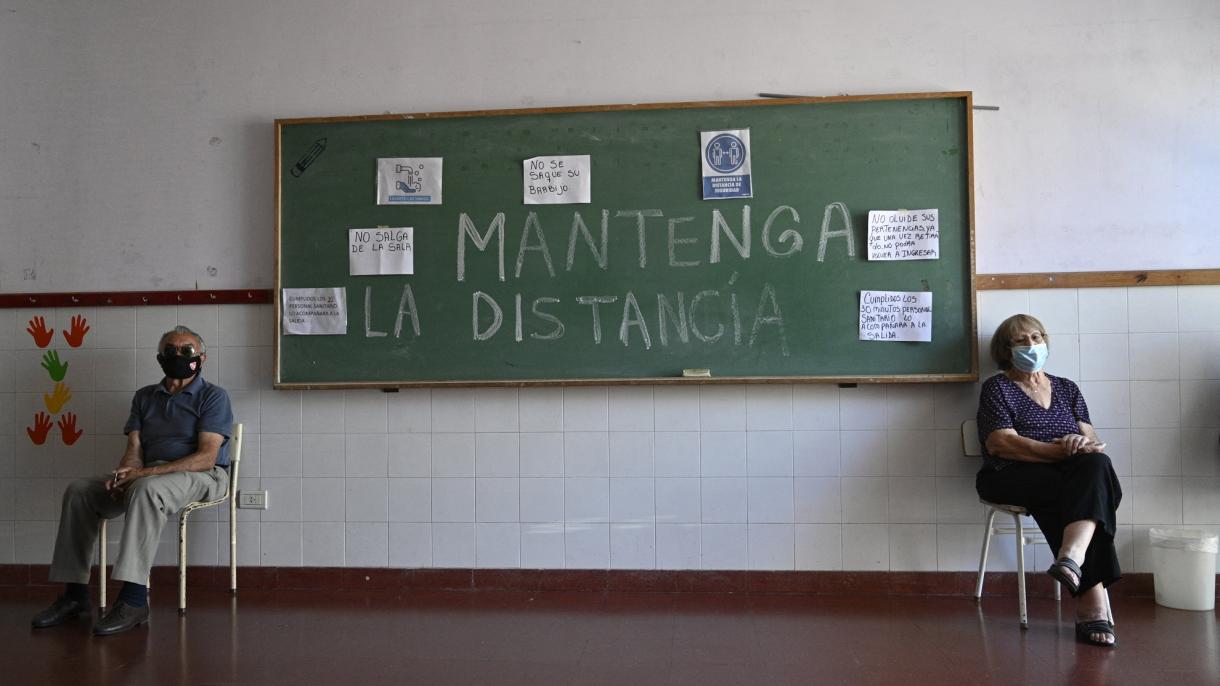 NO SE
SAQUE SU
BARBIJO.
MANTENGA LA
DISTANCIA DE
SEGURIDAD
MANTENGA
LA DISTANCÍA
NO SALGA
DE LA SALA
NO OLVIDE SUS
PERTENENCIAS, YA
QUE UNA VEZ RETIRA
DO. NO PODRA
VOLVER A INGRESAR
CUMPLIDOS LOS 30
PERSONAL SANITARIO
LO ACOMPAÑARA A LA
SALIDA
CUMPLIDOS LOS
30 MINUTOS PERSONAL
SANITARIO LO
ACOMPAÑARA A LA
SALIDA.